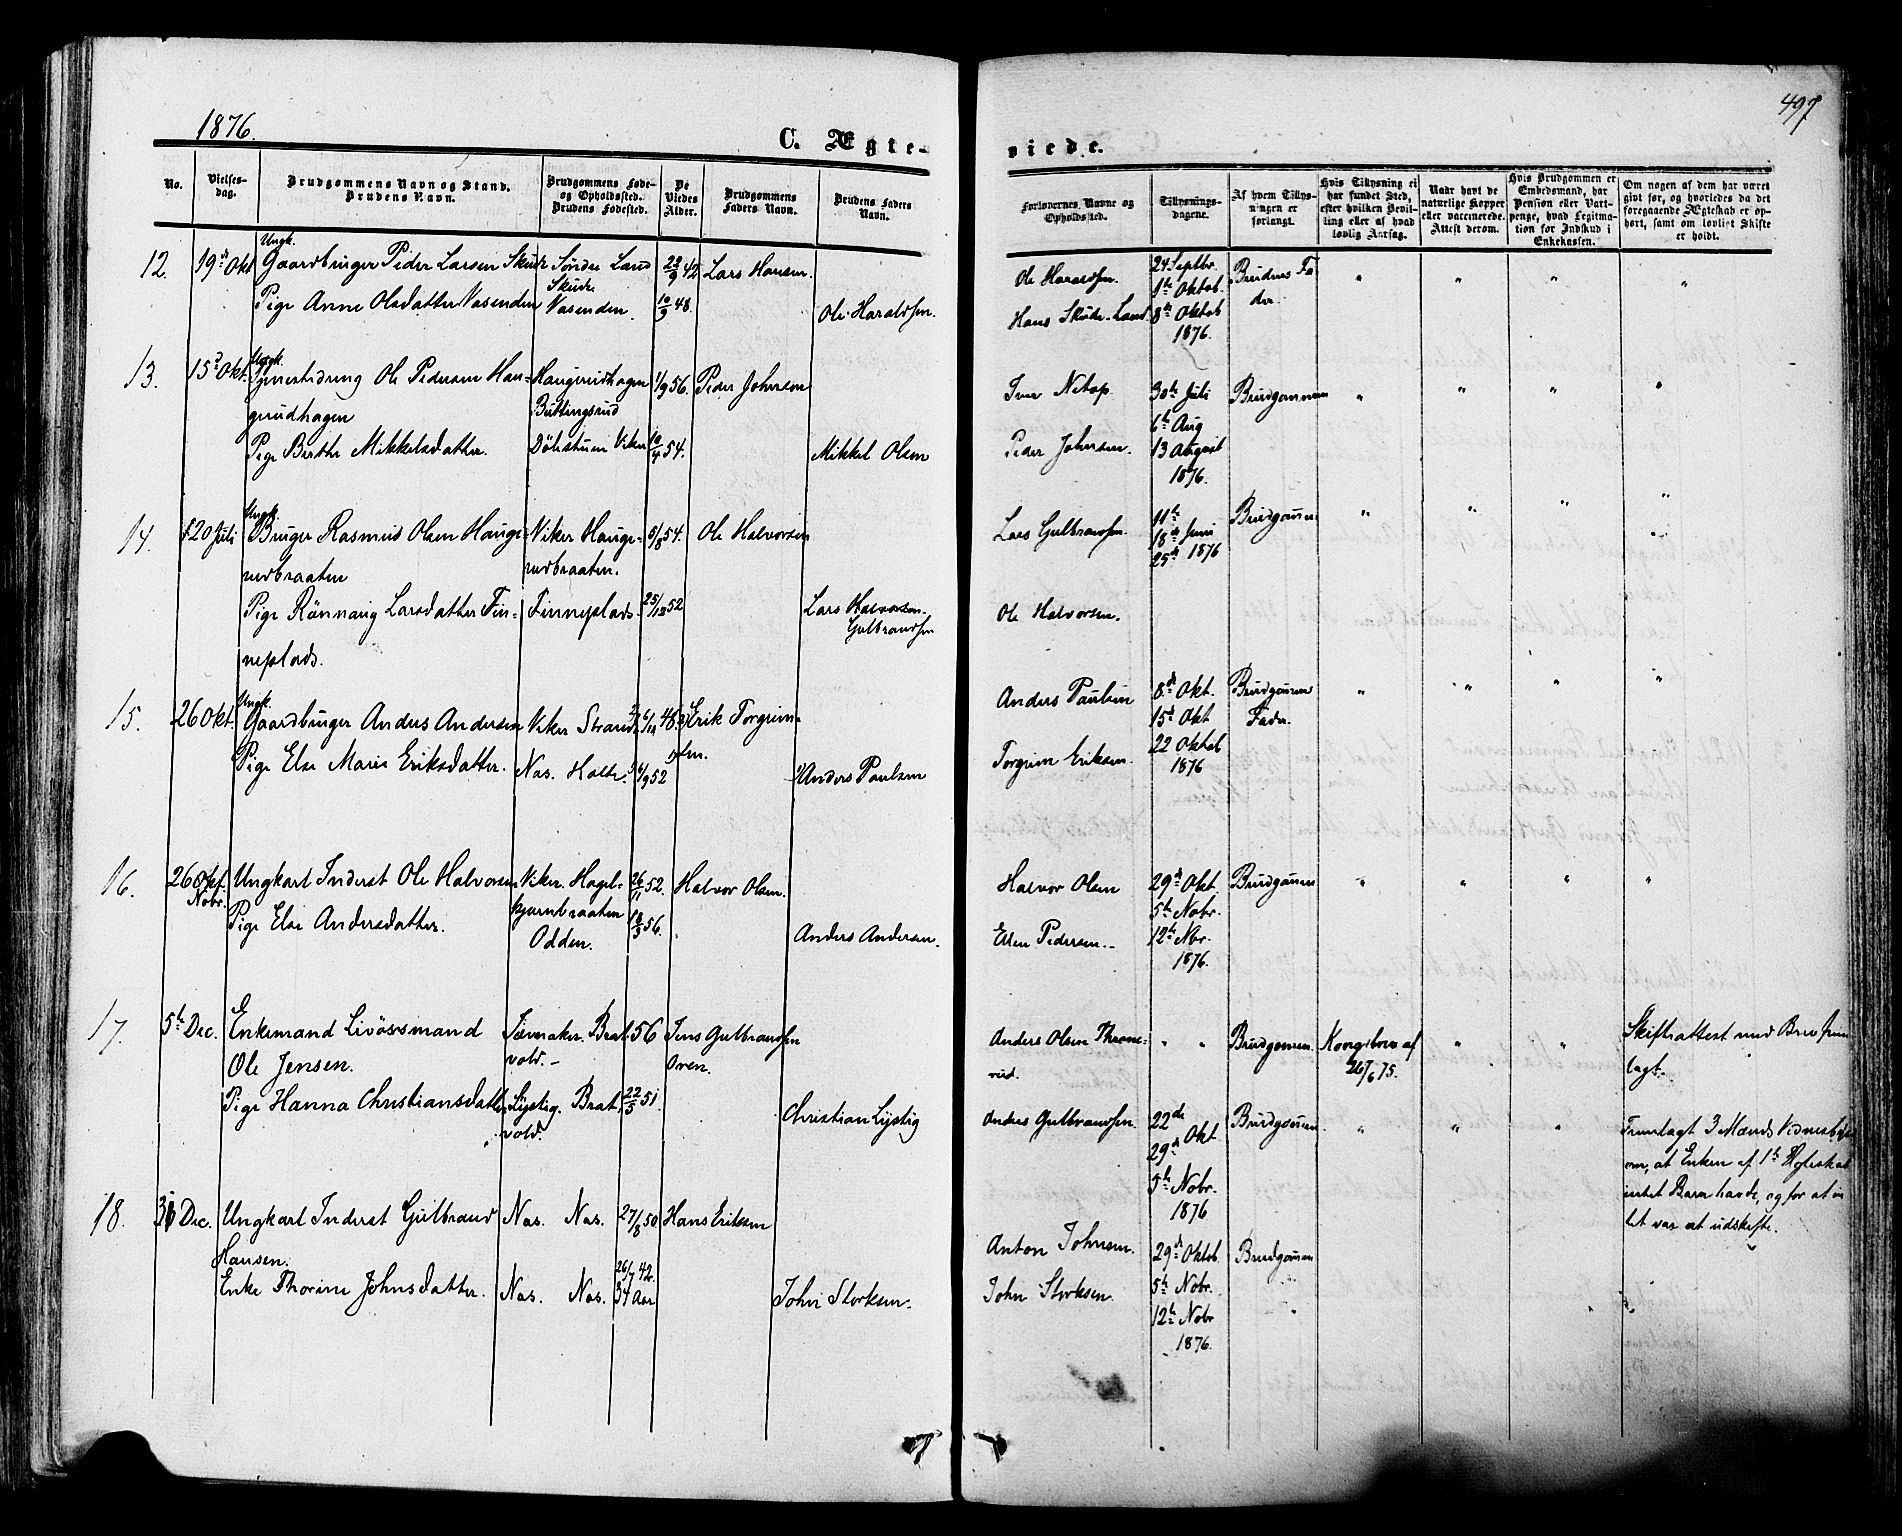 1876.
497
C. Ægte-
viede.
No.
Vielses-
dag.
Brudgommens Navn og Stand.
Brudens Navn.
Brudgommens Føde-
og Opholdssted.
Brudens Fødested.
De
Viedes
Alder.
Brudgommens
Faders Navn.
Brudens Faders
Navn.
Forlovernes Navne og
Opholdssted.
Tillysnings-
dagene.
Af hvem Tillys-
ningen er
forlangt.
Hvis Tillysning ei
har fundet Sted,
efter hvilken Bevil-
ling eller af hvad
lovlig Aarsag.
Naar havt de
naturlige Kopper
eller vaccinerede.
Attest derom.
Hvis Brudgommen er
Embedsmand, har
Pension eller Vart-
penge, hvad Legitma-
tion for Indskud i
Enkekassen.
Om nogen af dem har været
gift før, og hvorledes da det
foregaaende Ægteskab er op-
hørt, samt om lovligt Skifte
er holdt.
12. 19de Okt
Ungk.
Gaardbruger Peder Larsen Skute
Søndre Land
Skute
22/9 42
Lars Hansen.
Pige Anne Olsdatter Vasenden
Vasenden.
10/9 48.
Ole Haraldsen.
Ole Haraldsen.
Hans Skute-Land
24 Septbr.
1ste Oktob.
8de Oktob
1876.
Brudens Fa
der.
" " " "
13. 15de Okt.
Ungk.
Ole Pedersen Hau-
gerudhagen
Haugerudhagen
Buttingsrud
1/9 56.
Peder Johnsen
Pige Berthe Mikkelsdatter.
Dølestuen Viker
10/4 54.
Mikkel Olsen
Iver Netop.
Peder Johnsen.
30te Juli
6te Aug
13 August
1876.
Brudgommen
" " " "
14. 20 Juli
Ungk.
Bruger Rasmus Olsen Hauge-
rudbraaten
Viker Hauge-
rudbraaten.
5/8 54.
Ole Halvorsen
Pige Rønnaug Larsdatter Fin-
neplads.
Finneplads.
25/12 52
Lars Halvorsen.
Gulbrandsen
Lars Gulbrandsen.
Ole Halvorsen.
11te
18de Juni
25de 1876
Brudgommen
" " " "
15. 26 Okt.
Ungk.
Gaardbruger Anders Andersen
Viker Strand
48
Erik Torgrim-
sen.
Pige Else Marie Eriksdatter.
Nas. Holte.
4/9 52
Anders Paulsen
Anders Paulsen
Torgrim Eriksen.
8de Okt.
15de Okt
22 Oktob
1876
Brudgommens
Fader.
" " " "
16. 26 Okt.
Nobr.
Ungkarl Inderst Ole Halvorsen
Viker. Hagel-
kjernbraaten
26/11 52.
Halvor Olsen.
Pige Else Andersdatter.
Odden.
18/3 56.
Anders Andersen.
Halvor Olsen
Elen Pedersen.
29de Okt.
5te Nobr.
12te Nbr.
1876.
Brudgommen
" " " "
17. 5te Dec.
Enkemand Livøssmand
Ole Jensen.
Jævnaker. Brat-
vold.-
56
Jens Gulbrandsen
Oren.
Pige Hanna Christiansdatter
Lystig. Brat-
vold.
22/5 51.
Christian Lystig
Anders Olsen Throne-
rud.
" "
Brudgommen.
Kongebrev af
26/6 75.
" "
Skifteattest ved Brev frem
lagt.
Anders Gulbrandsen.
22de
29de Okt
5te Nobr.
1876
Brudgommen
" " "
Fremlagt 3 Mænds Vidnesbyrd
om, at Enken af 1ste Ægteskab
intet Barn havde, og for at in
tet var at udskifte.
18. 31 Dec.
Ungkarl Inderst Gulbrand
Hansen.
Nas. Nas.
27/8 50
Hans Eriksen
Enke Thorine Johnsdatter.
Nas. Nas.
26/7 42.
34 Aar
John Storksen.
Anton Johnsen.
John Storksen.
29de Oktob.
5te Nobr.
12te Nobr
1876.
Brudgommen
"